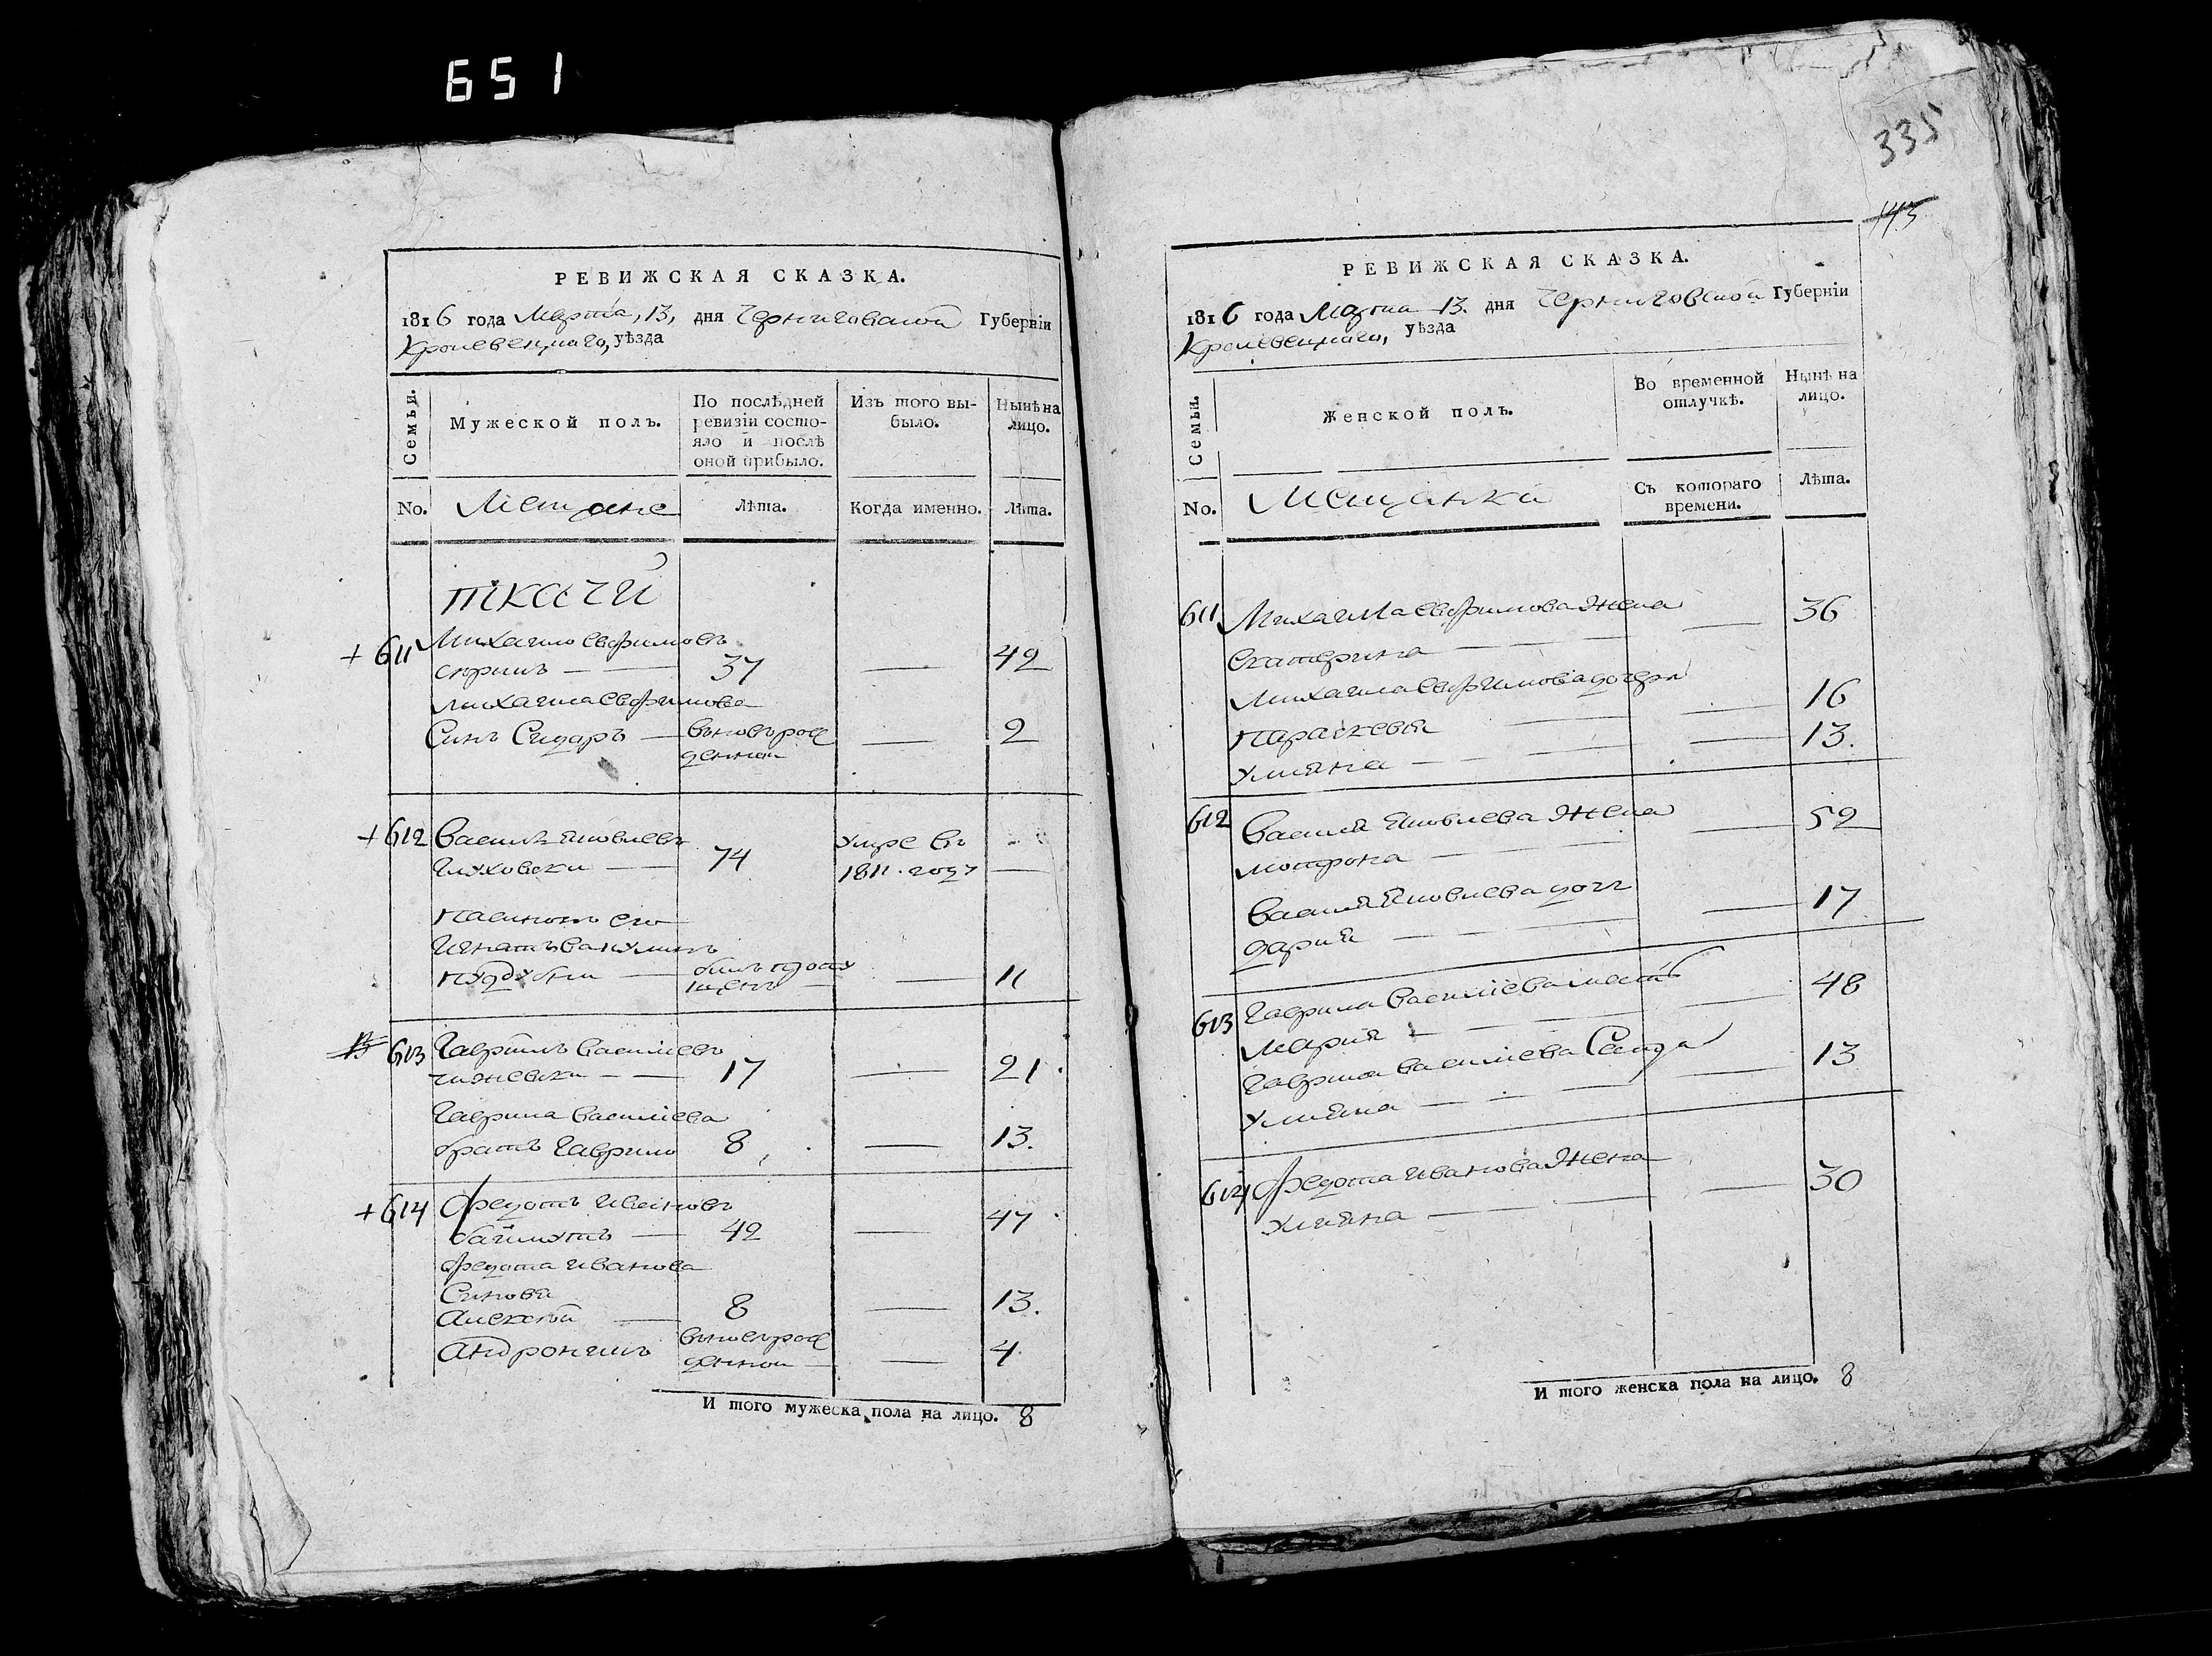 651
РЕВИЖСКАЯ СКАЗКА.
1816 года Марта, 13, дня Черниговской Губерніи
Кролевецкаго, уѣзда
Семьи.
Мужеской полъ.
По послѣдней ревизіи состо-
яло и послѣ оной прибыло.
Изъ того вы-
было.
Нынѣ на лицо.
No.
Мещане
Лѣта.
Когда именно.
Лѣта.
ткачи
+ 611 Михайло Евфимовъ
37 42
Михайла Евфимова
Синъ Сидаръ — вьновърож
денной — 2
+ 612 Василь Яковлевъ
Глуховски — 74
умре въ
1811. году —
пасинокъ его
Игнатъ
билъ пропу
щенъ — 11
613 Гаврилъ Василіевъ
чижевски — 17 — 21.
Гаврила Василіева
братъ Гаврило 8, — 13.
+ 614 Федотъ Ивановъ
42 — 47
Федота Иванова
Синови
Алексѣй — 8 — 13.
Андроникъ вьновърож
денной — 4
И того мужеска пола на лицо. 8
335
143
РЕВИЖСКАЯ СКАЗКА.
1816 года Марта 13. дня Черниговской Губерніи
Кролевецкаго, уѣзда
Семьи.
Женской полъ.
Во временной
отлучкѣ.
Нынѣ на
лицо.
No.
Мещанки
Съ котораго
времени.
Лѣта.
611 Михайла Евфимова Жена
Екатерина — 36
Михайла Евфимова дочери
параскевія — 16
Улияна — 13.
612 Василя Яковлева Жена
мотрона — 52
Василя Яковлева дочь
дария — 17
613 Гаврила Василіева мать
Мария — 48
Гаврила Василіева Сестра
Улияна — 13
614 Федота Иванова Жена
Улияна — 30
И того женска пола на лицо. 8